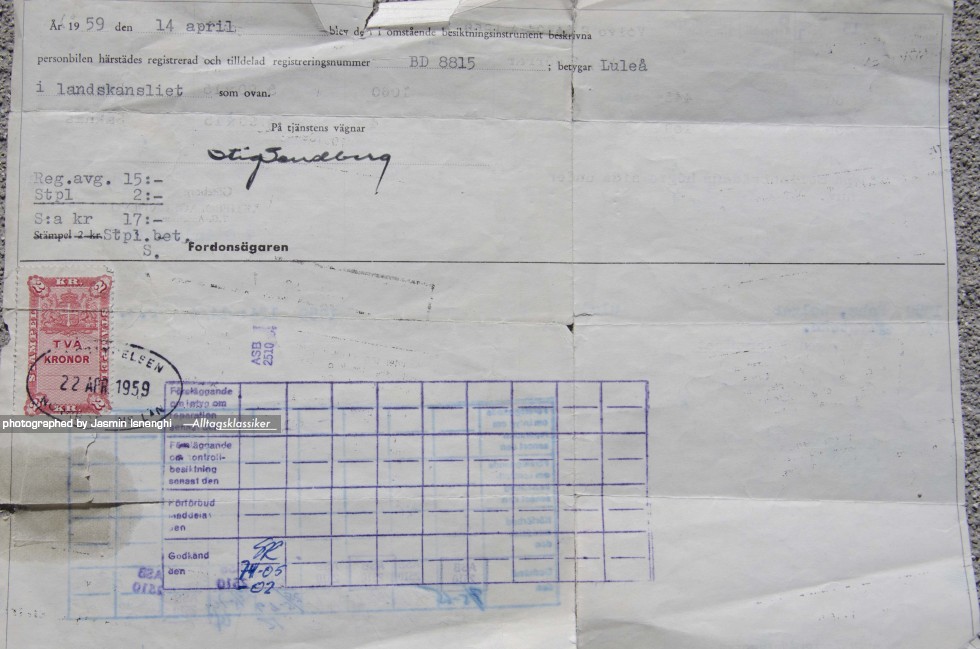 År 1959 den 14 april blev de i omstående besiktningsinstrument beskrivna
personbilen härstädes registrerad och tilldelad registreringsnummer BD 8815 ; betygar Luleå
i landskansliet som ovan.
På tjänstens vägnar
Stig Sandberg
Reg.avg. 15:-
Stpl 2:-
S:a kr 17:-
Stämpel 2 kr. Stpl.bet,
S.
Fordonsägaren
KR.
TVÅ
KRONOR
22 APR 1959
ASB
2510
Föreläggande
om intyg om
reparation
Föreläggande
om kontroll-
besiktning
senast den
Körförbud
meddelat
den
Godkänd
den
74-05
02
ASB
2510
2510
photographed by Jasmin Ienenghi Alltagsklassiker